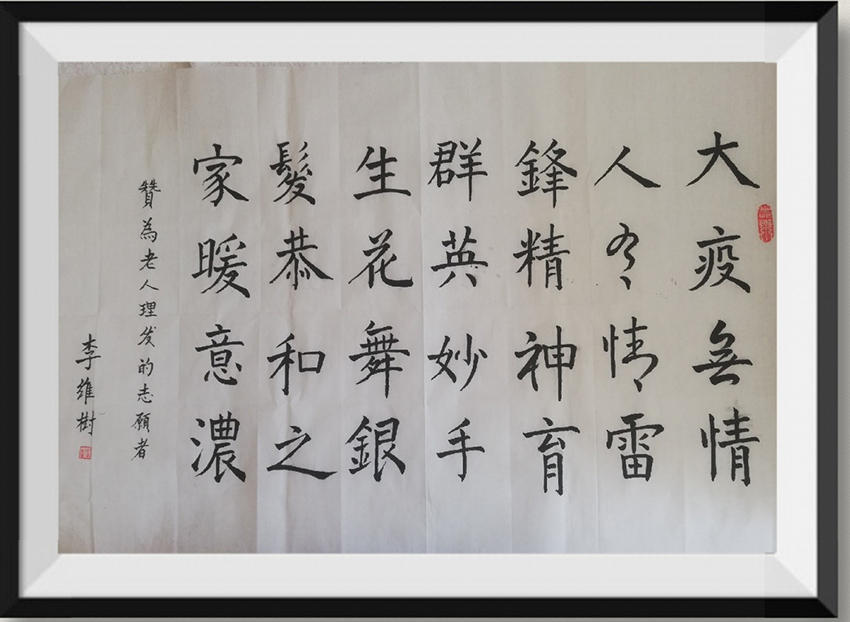 大疫無情
人有情雷
鋒精神育
群英妙手
生花舞銀
髮恭和之
家暖意濃
贊為老人理发的志願者
李維樹